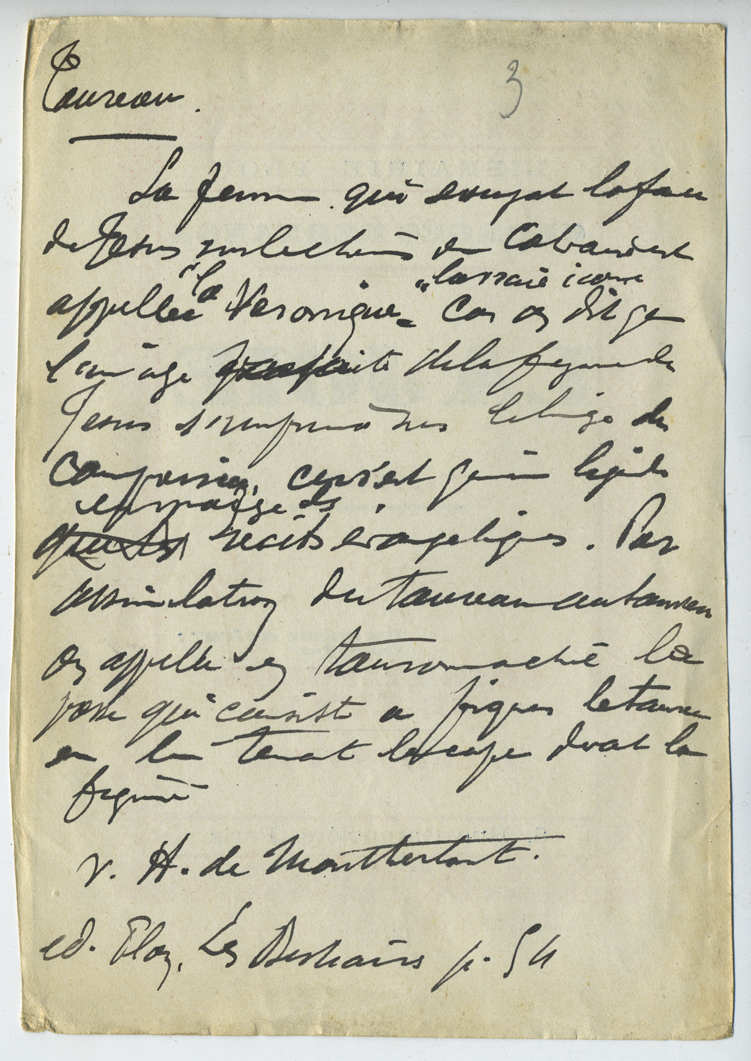 Taureau.
3
La femme qui essuyat la face
de Jesus sur le chemin du Calvaire est
"la vraie icone
appellée "la Veronique" Car on dit que
l'image parfaite de la figure de
Jesus s'imprima sur le linge de
compassion, ce n'est qu'une légende
en marge des
que les récits évangeliques. Par
assimilation du taureau au taureau
on appelle en tauromachie la
passe qui consiste a figurer le taureau
en lui tenant la cape devant la
figure
v. H. de Montherlant.
ed. Plon, Les Bestiaires p. 54